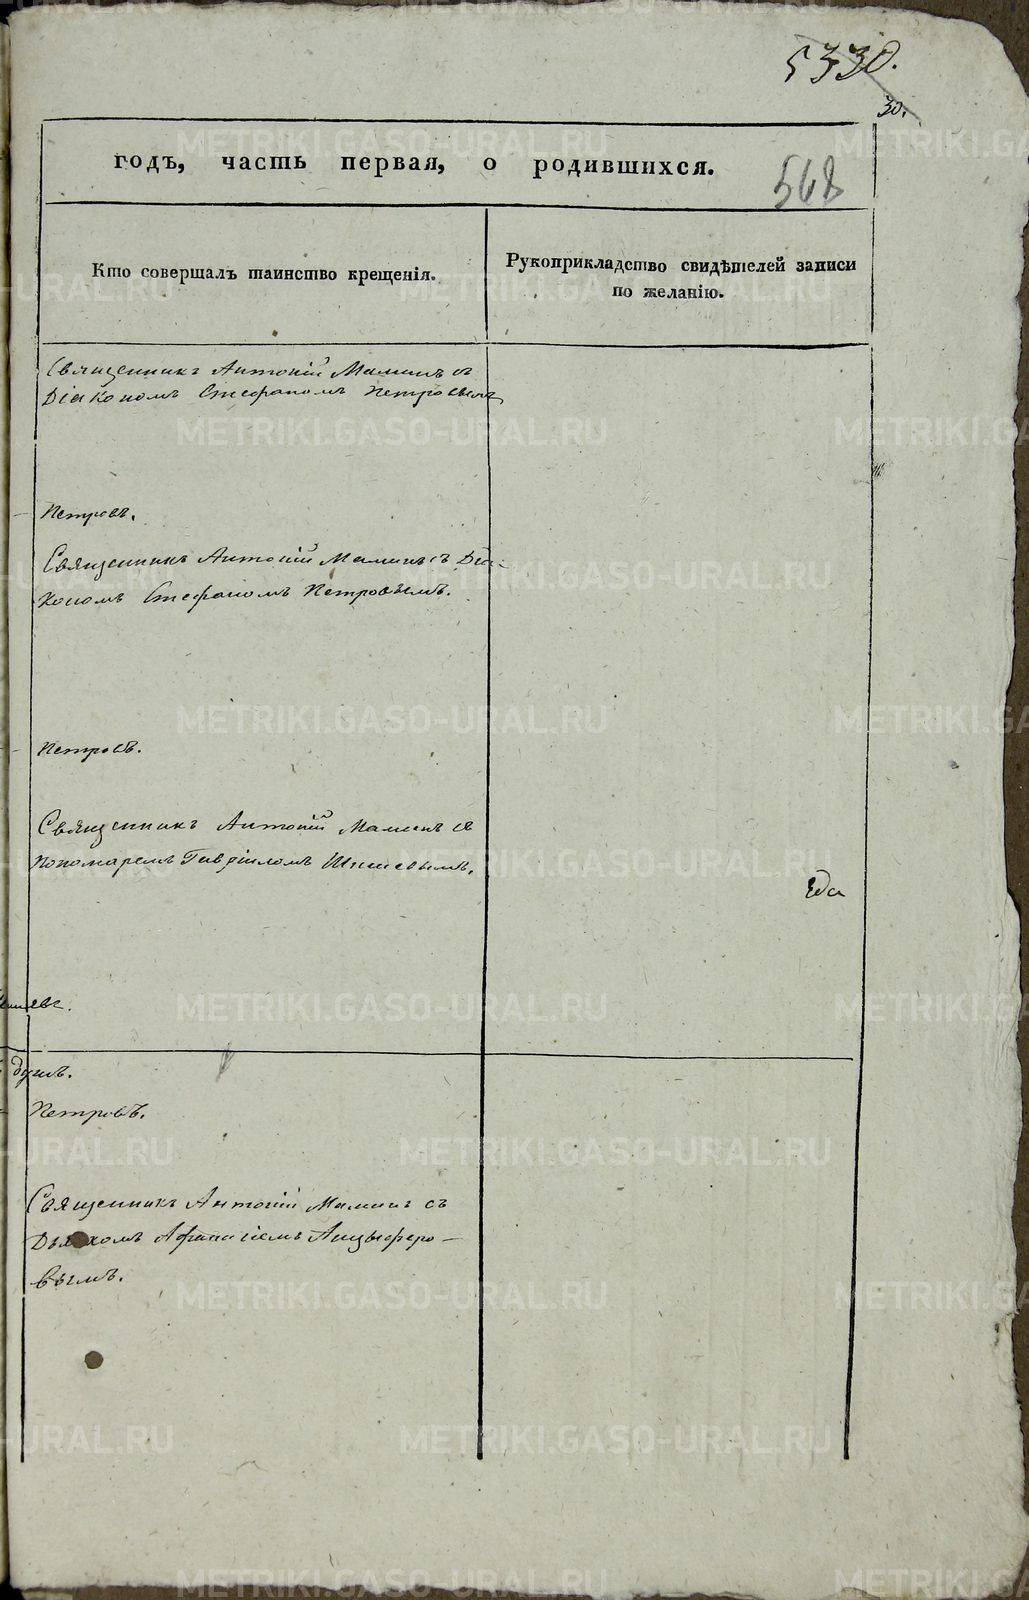 5330.
30.
годъ, часть первая, о родившихся.
568
Кто совершалъ таинство крещенія.
Рукоприкладство свидѣтелей записи
по желанію.
Священникъ Антоній Маминъ съ
Діакономъ Стефаномъ Петровымъ
Петровъ.
Священникъ Антоній Маминъ съ Діа-
кономъ Стефаномъ Петровымъ.
Петровъ.
Священникъ Антоній Маминъ съ
Пономаремъ Гавріиломъ
душъ.
Петровъ.
Священникъ Антоній Маминъ съ
Дьячкомъ Афанасіемъ Анцыферо-
вымъ.
METRIKI.GASO-URAL.RU